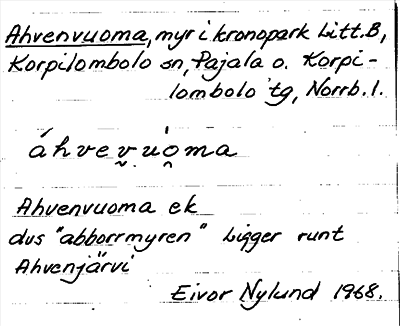 Ahvenvuoma, myr i kronopark Litt.B,
Korpilombolo sn, Pajala o. Korpi-
lombolo tg, Norrb.l.
áhvev̯uo̭ma
Ahvenvuoma ek
dvs "abborrmyren" Ligger runt
Ahvenjärvi
Eivor Nylund 1968.